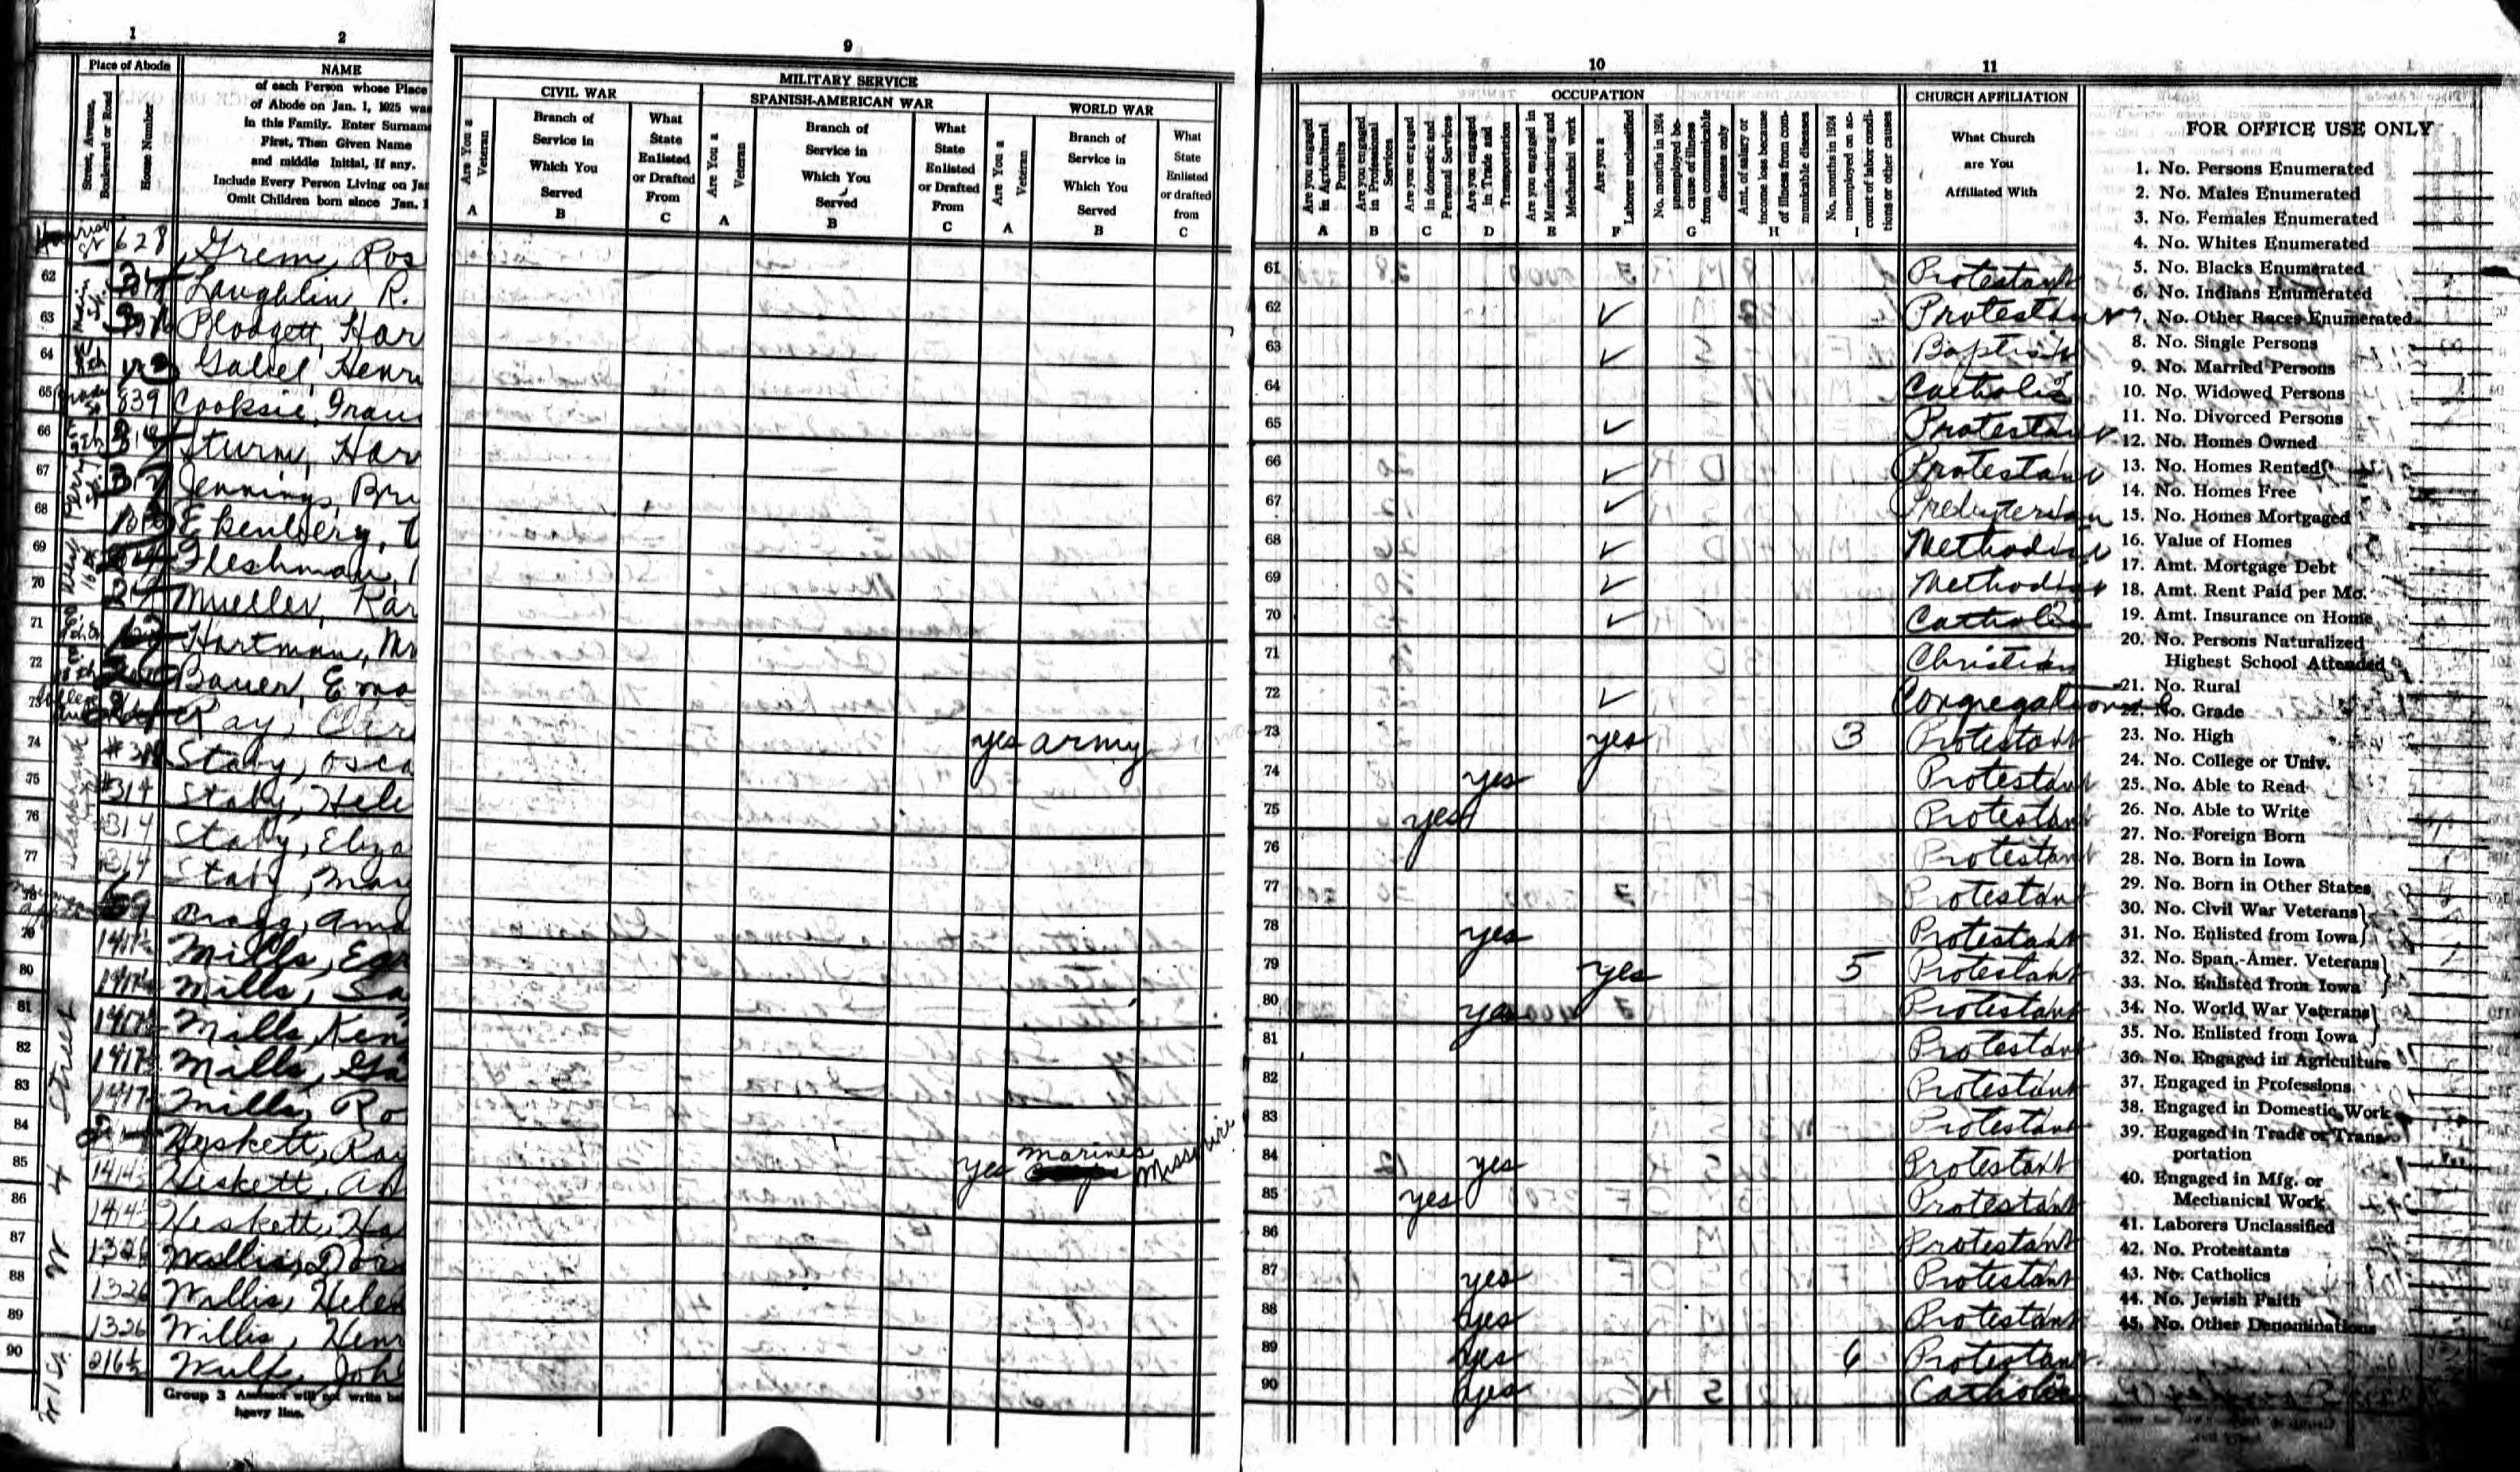 1 2
Place of Abode
Street, Avenue, Boulevard or Road
House Number
NAME
of each Person whose Place
of Abode on Jan. 1, 1925 was
in this Family. Enter Surname
First, Then Given Name
and middle Initial, if any.
Include Every Person Living on Jan
Omit Children born since Jan. 1
628 Grem, Ros
62 Laughlin R.
63 Blodgett, Har
64 Gabel, Henri
65 839 Cooksie, Frau
66 Sturm, Har
67 Perry St. 317 Jennings, Bri
68 Ekenberg,
69 Fleshman,
70 Mueller, Kar
71 Hartman, Mr
72 Bauer, Emo
73 Ray, Clar
74 Staby, Osca
75 #314 Staby, Hele
76 #314 Staby, Eliza
77 #314 Staby, Mar
78 Bragg, Ama
79 1417½ Mills, Ear
80 1417½ Mills, Sa
81 1417½ Mills, Ken
82 1417½ Mills, Ga
83 1417½ Mills, Ro
84 Heskett, Ray
85 1414½ Heskett, A
86 1414½ Heskett, Ha
87 1326 Wallis, Dor
88 1326 Willis, Helen
89 1326 Willis, Henr
90 216½ Wulf, Joh
W 4 Street
Group 3 Assessor will not write be
heavy line.
9
MILITARY SERVICE
CIVIL WAR
Are You a Veteran
A
Branch of Service in Which You Served
B
What State Enlisted or Drafted From
C
SPANISH-AMERICAN WAR
Are You a Veteran
A
Branch of Service in Which You Served
B
What State Enlisted or Drafted From
C
WORLD WAR
Are You a Veteran
A
Branch of Service in Which You Served
B
What State Enlisted or drafted from
C
yes army
yes marines Missouri
10
OCCUPATION
Are you engaged in Agricultural Pursuits
A
Are you engaged in Professional Services
B
Are you engaged in domestic and Personal Services
C
Are you engaged in Trade and Transportation
D
Are you engaged in Manufacturing and Mechanical work
E
Are you a Laborer unclassified
F
No. months in 1924 unemployed because of illness from communicable diseases only
G
Amt. of salary or income loss because of illness from communicable diseases
H
No. months in 1924 unemployed on account of labor conditions or other causes
I
11
CHURCH AFFILIATION
What Church
are You
Affiliated With
61 Protestant
62 ✓ Protestant
63 ✓ Baptist
64 Catholic
65 ✓ Protestant
66 ✓ Protestant
67 ✓ Presbyterian
68 ✓ Methodist
69 ✓ Methodist
70 ✓ Catholic
71 Christian
72 ✓ Congregational
73 yes 3 Protestant
74 yes Protestant
75 yes Protestant
76 Protestant
77 Protestant
78 yes Protestant
79 yes 5 Protestant
80 yes Protestant
81 Protestant
82 Protestant
83 Protestant
84 yes Protestant
85 yes Protestant
86 Protestant
87 yes Protestant
88 yes Protestant
89 yes 6 Protestant
90 yes Catholic
FOR OFFICE USE ONLY
1. No. Persons Enumerated
2. No. Males Enumerated
3. No. Females Enumerated
4. No. Whites Enumerated
5. No. Blacks Enumerated
6. No. Indians Enumerated
7. No. Other Races Enumerated
8. No. Single Persons
9. No. Married Persons
10. No. Widowed Persons
11. No. Divorced Persons
12. No. Homes Owned
13. No. Homes Rented
14. No. Homes Free
15. No. Homes Mortgaged
16. Value of Homes
17. Amt. Mortgage Debt
18. Amt. Rent Paid per Mo.
19. Amt. Insurance on Home
20. No. Persons Naturalized
Highest School Attended
21. No. Rural
22. No. Grade
23. No. High
24. No. College or Univ.
25. No. Able to Read
26. No. Able to Write
27. No. Foreign Born
28. No. Born in Iowa
29. No. Born in Other States
30. No. Civil War Veterans
31. No. Enlisted from Iowa
32. No. Span.-Amer. Veterans
33. No. Enlisted from Iowa
34. No. World War Veterans
35. No. Enlisted from Iowa
36. No. Engaged in Agriculture
37. Engaged in Professions
38. Engaged in Domestic Work
39. Engaged in Trade or Trans-
portation
40. Engaged in Mfg. or
Mechanical Work
41. Laborers Unclassified
42. No. Protestants
43. No. Catholics
44. No. Jewish Faith
45. No. Other Denominations